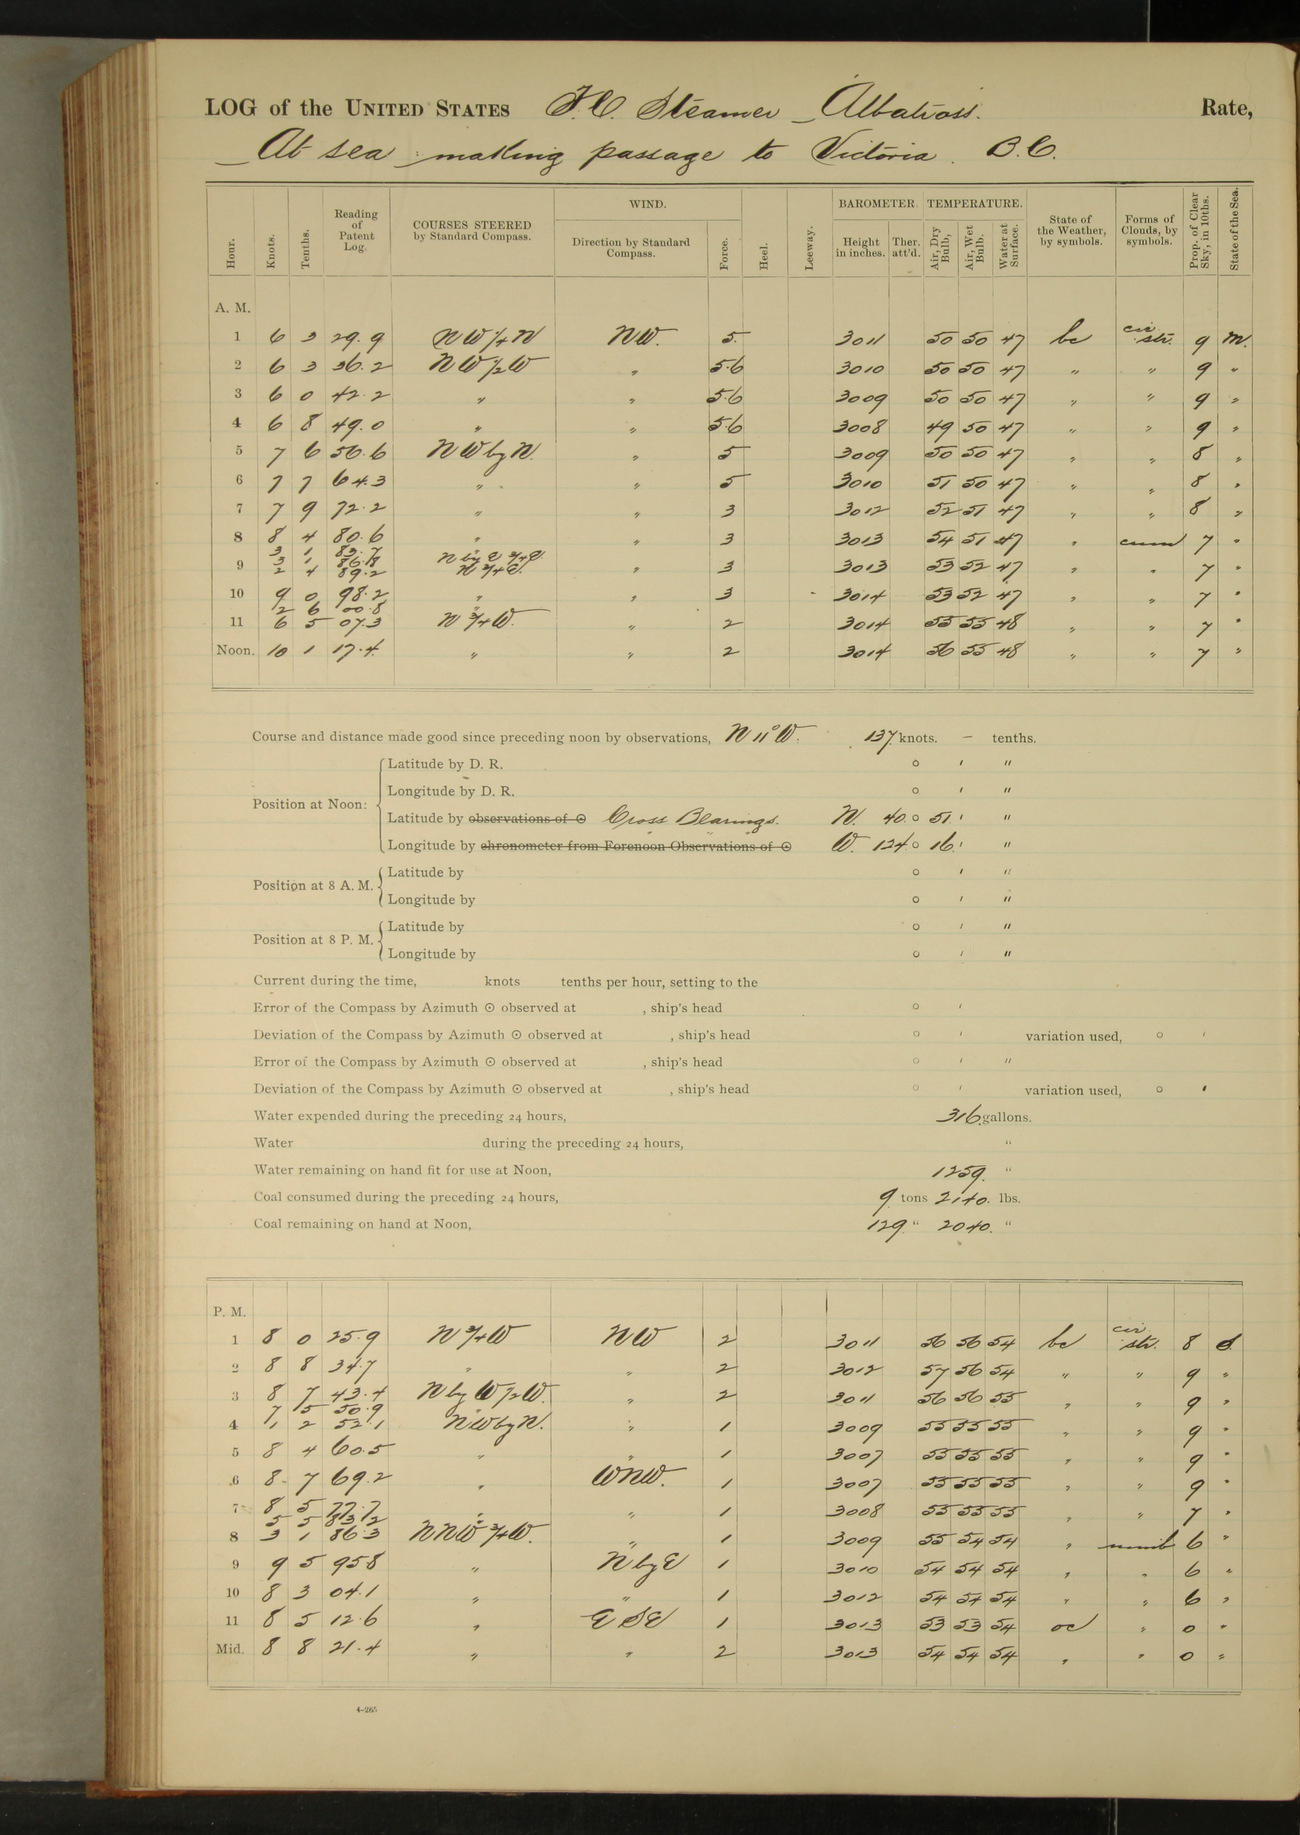 LOG of the UNITED STATES F.C. Steamer Albatross. Rate,
At sea making passage to Victoria. B.C.
Hour. Knots. Tenths. Reading of Patent Log. COURSES STEERED by Standard Compass. WIND. Direction by Standard Compass. Force. Heel. Leeway. BAROMETER. Height in inches. Ther. att'd. TEMPERATURE. Air, Dry Bulb, Air, Wet Bulb. Water at Surface. State of the Weather, by symbols. Forms of Clouds, by symbols. Prop. of Clear Sky, in 10ths. State of the Sea.
A. M.
1 6 3 29.9 NW ¼ N NW. 5. 3011 50 50 47 bc cir str. 9 M.
2 6 3 36.2 NW ½ W " 5.6 3010 50 50 47 " " 9 "
3 6 0 42.2 " " 5.6 3009 50 50 47 " " 9 "
4 6 8 49.0 " " 5.6 3008 49 50 47 " " 9 "
5 7 6 56.6 NW by N. " 5 3009 50 50 47 " " 8 "
6 7 7 64.3 " " 5 3010 51 50 47 " " 8 "
7 7 9 72.2 " " 3 3012 52 51 47 " " 8 "
8 8 4 80.6 " " 3 3013 54 51 47 " cum 7 "
3 1 83.7
3 1 86.8 N by E ¾ E
9 2 4 89.2 N ¾ E. " 3 3013 53 52 47 " " 7 "
10 9 0 98.2 " " 3 3014 53 52 47 " " 7 "
2 6 00.8 "
11 6 5 07.3 N ¾ W. " 2 3014 55 55 48 " " 7 "
Noon. 10 1 17.4 " " 2 3014 56 55 48 " " 7 "
Course and distance made good since preceding noon by observations, N 11° W. 137 knots. — tenths.
Position at Noon:
Latitude by D. R. ° ′ ″
Longitude by D. R. ° ′ ″
Latitude by observations of ⊙ Cross Bearings. N. 40 ° 51 ′ ″
Longitude by chronometer from Forenoon Observations of ⊙ " " W. 124 ° 16 ′ ″
Position at 8 A. M.
Latitude by ° ′ ″
Longitude by ° ′ ″
Position at 8 P. M.
Latitude by ° ′ ″
Longitude by ° ′ ″
Current during the time, knots tenths per hour, setting to the
Error of the Compass by Azimuth ⊙ observed at , ship's head ° ′
Deviation of the Compass by Azimuth ⊙ observed at , ship's head ° ′ variation used, ° ′
Error of the Compass by Azimuth ⊙ observed at , ship's head ° ′ ″
Deviation of the Compass by Azimuth ⊙ observed at , ship's head ° ′ variation used, ° ′
Water expended during the preceding 24 hours, 316 gallons.
Water during the preceding 24 hours, "
Water remaining on hand fit for use at Noon, 1259. "
Coal consumed during the preceding 24 hours, 9 tons 2140. lbs.
Coal remaining on hand at Noon, 129 " 2040. "
P. M.
1 8 0 25.9 N ¾ W NW 2 3011 56 56 54 bc cir str. 8 S
2 8 8 34.7 " " 2 3012 57 56 54 " " 9 "
3 8 7 43.4 N by W ½ W. " 2 3011 56 56 55 " " 9 "
7 5 50.9
4 1 2 52.1 NW by N. " 1 3009 55 55 55 " " 9 "
5 8 4 60.5 " " 1 3007 55 55 55 " " 9 "
6 8 7 69.2 " WNW. 1 3007 55 55 55 " " 9 "
7 8 5 77.7 " " 1 3008 55 55 55 " " 7 "
5 5 83.2 "
8 3 1 86.3 NNW ¾ W. " 1 3009 55 54 54 " nimb 6 "
9 9 5 95.8 " N by E 1 3010 54 54 54 " " 6 "
10 8 3 04.1 " " 1 3012 54 54 54 " " 6 "
11 8 5 12.6 " ESE 1 3013 53 53 54 oc " 0 "
Mid. 8 8 21.4 " " 2 3013 54 54 54 " " 0 "
4—265